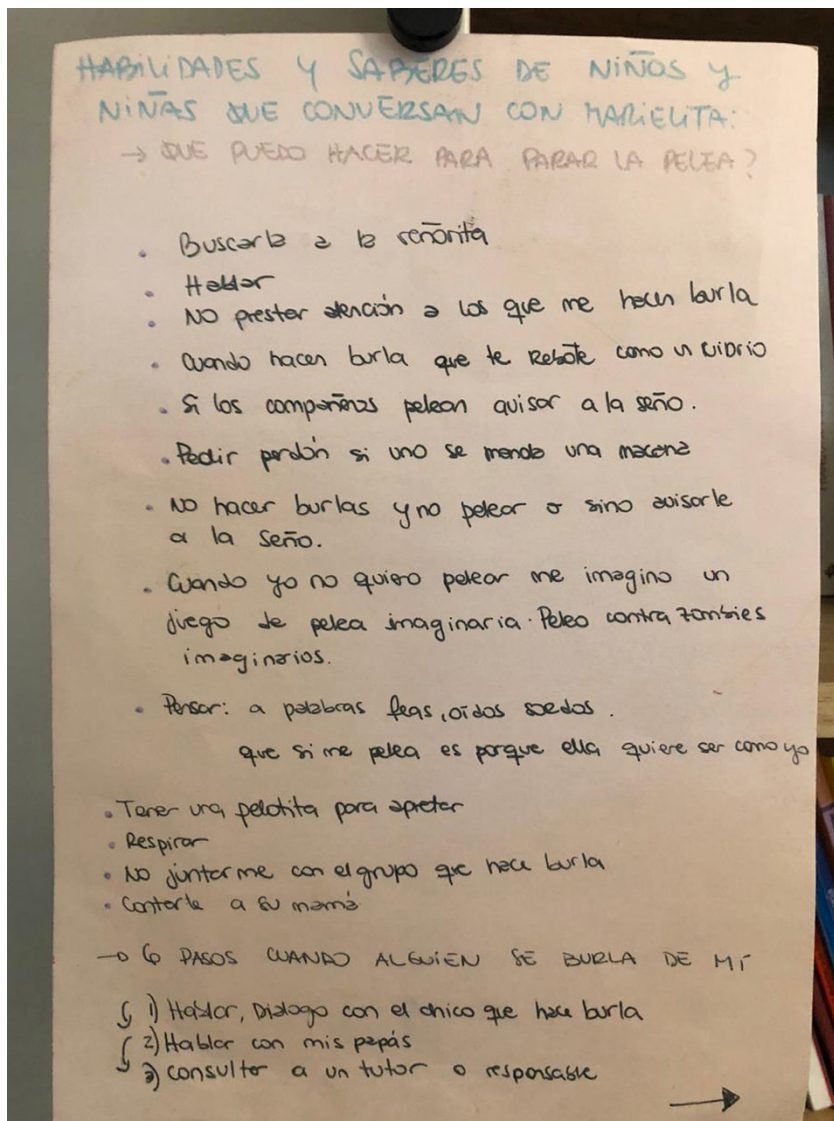 HABILIDADES Y SABERES DE NIÑOS Y
NIÑAS QUE CONVERSAN CON MARIELITA:
→ QUE PUEDO HACER PARA PARAR LA PELEA?
• Buscarla a la señorita
• Hablar
• NO prestar atención a los que me hacen burla
• Cuando hacen burla que te Rebote como un vidrio
• Si los compañeros pelean avisar a la seño.
• Pedir perdón si uno se manda una macana
• NO hacer burlas y no pelear o sino avisarle
a la Seño.
• Cuando yo no quiero pelear me imagino un
juego de pelea imaginaria. Peleo contra zombies
imaginarios.
• Pensar: a palabras feas, oídos sordos.
que si me pelea es porque ella quiere ser como yo
• Tener una pelotita para apretar
• Respirar
• No juntarme con el grupo que hace burla
• Contarle a su mamá
→ 6 PASOS CUANDO ALGUIEN SE BURLA DE MI
1) Hablar, Dialogo con el chico que hace burla
2) Hablar con mis papás
3) consultar a un tutor o responsable
→